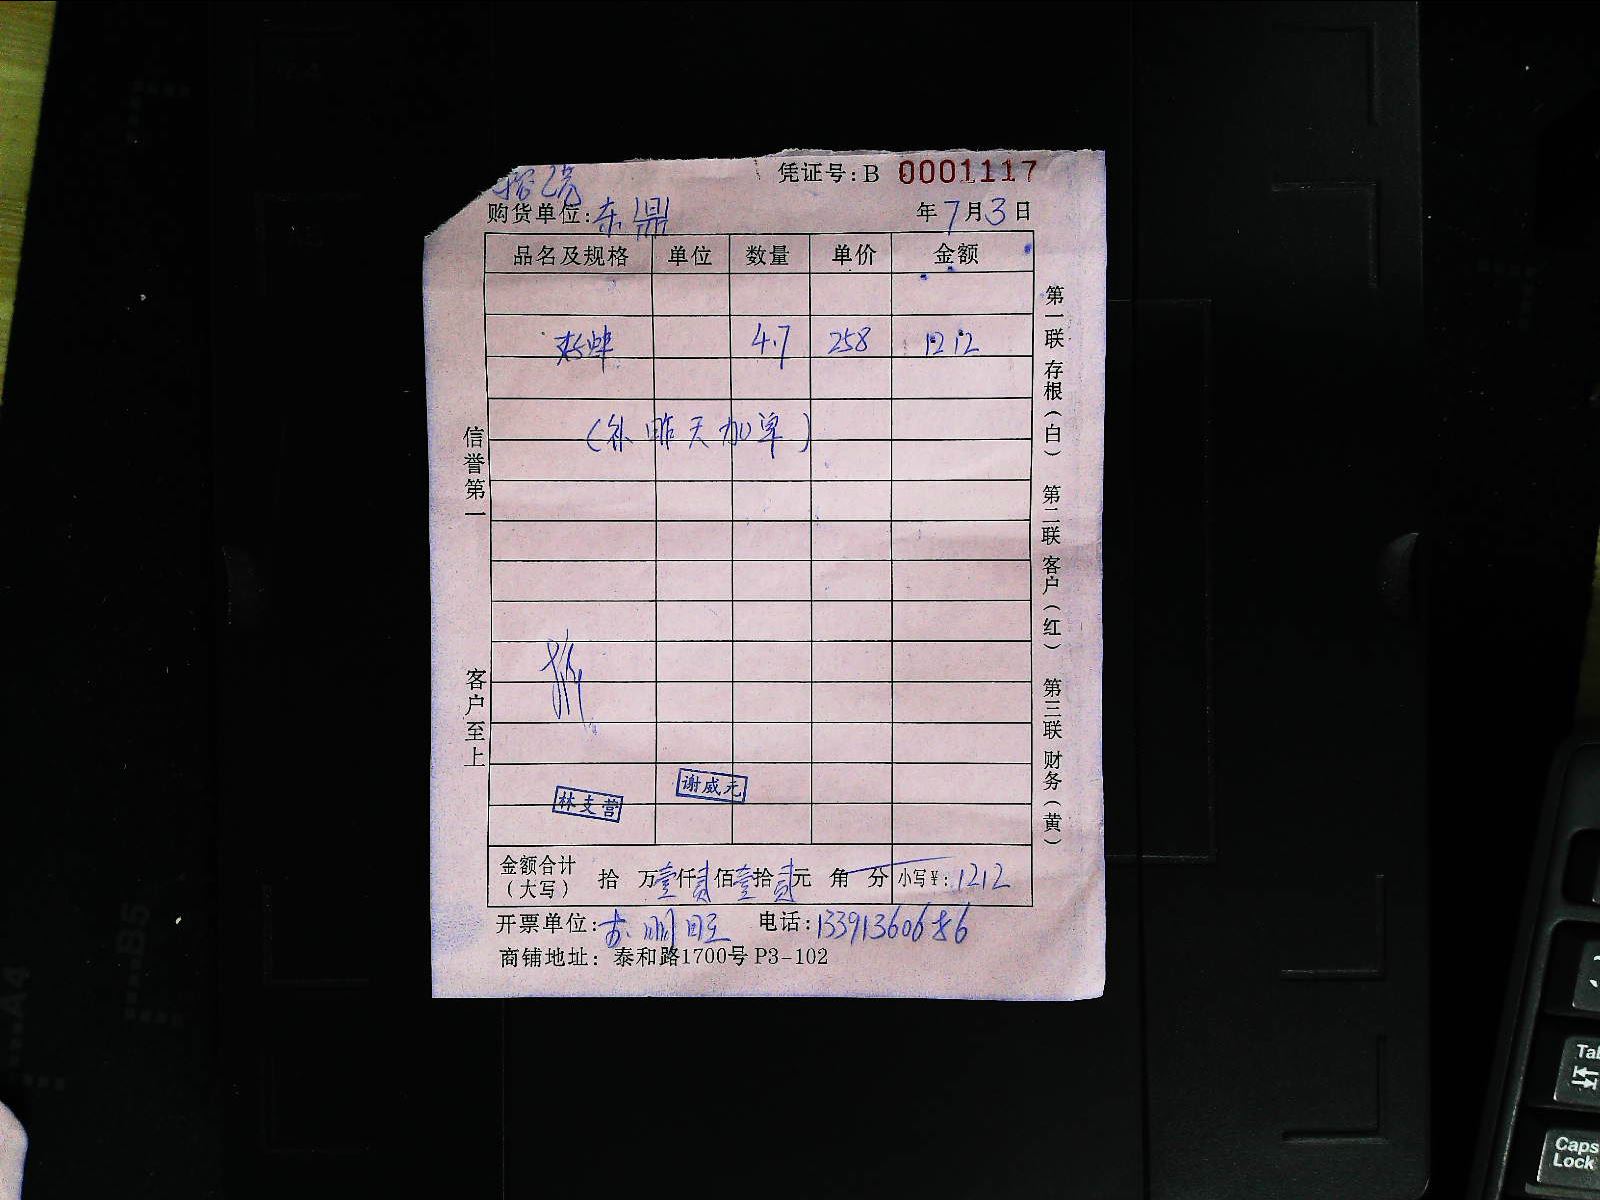 凭证号:B 0001117
购货单位:东鼎 年7月3日
品名及规格 单位 数量 单价 金额
4.7 258 1212
(补昨天加单)
信誉第一
客户至上
第一联存根(白) 第二联客户(红) 第三联财务(黄)
谢威元
林支营
金额合计(大写) 拾 万壹仟贰佰壹拾贰元 角 分 小写¥:1212
开票单位: 电话:
商铺地址:泰和路1700号 P3-102
A4
B5
Tab
Caps Lock